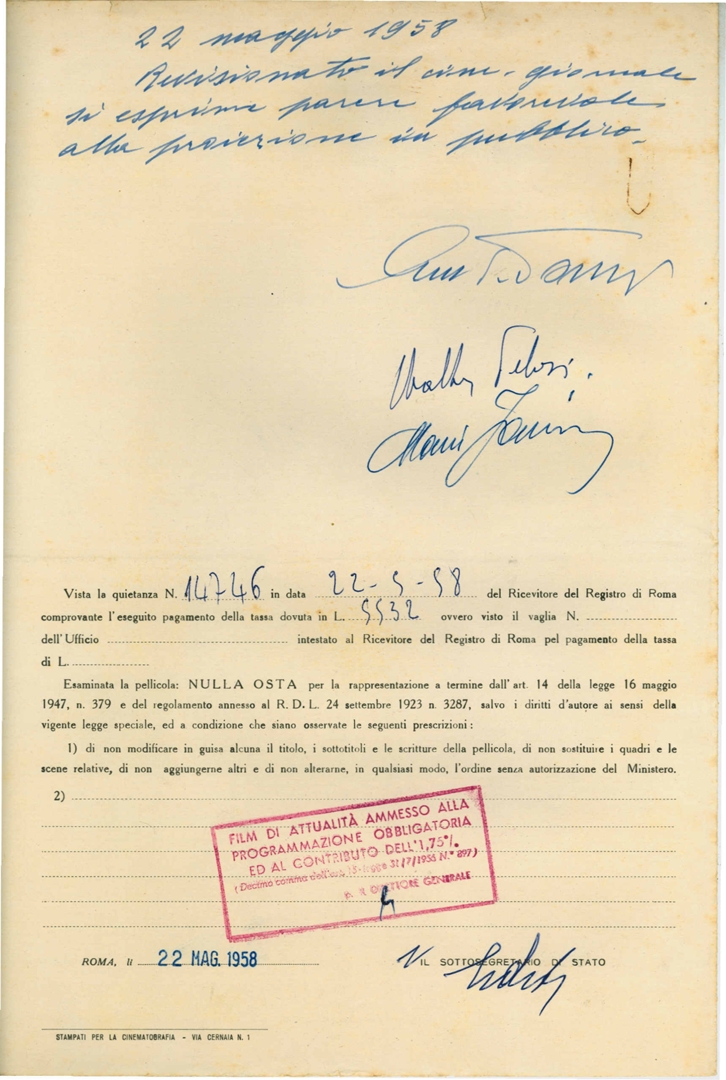 22 maggio 1958
Revisionato il cine-giornale
si esprime parere favorevole
alla proiezione in pubblico.
Vista la quietanza N. 14746 in data 22-5-58 del Ricevitore del Registro di Roma
comprovante l'eseguito pagamento della tassa dovuta in L. 5532 ovvero visto il vaglia N.
dell'Ufficio intestato al Ricevitore del Registro di Roma pel pagamento della tassa
di L.
Esaminata la pellicola: NULLA OSTA per la rappresentazione a termine dall'art. 14 della legge 16 maggio
1947, n. 379 e del regolamento annesso al R. D. L. 24 settembre 1923 n. 3287, salvo i diritti d'autore ai sensi della
vigente legge speciale, ed a condizione che siano osservate le seguenti prescrizioni:
1) di non modificare in guisa alcuna il titolo, i sottotitoli e le scritture della pellicola, di non sostituire i quadri e le
scene relative, di non aggiungerne altri e di non alterarne, in qualsiasi modo, l'ordine senza autorizzazione del Ministero.
2)
FILM DI ATTUALITÀ AMMESSO ALLA
PROGRAMMAZIONE OBBLIGATORIA
ED AL CONTRIBUTO DELL'1,75%
(Decimo comma dell'art. 15-legge 31/7/1956 N.° 897)
IL DIRETTORE GENERALE
ROMA, li 22 MAG. 1958
IL SOTTOSEGRETARIO DI STATO
STAMPATI PER LA CINEMATOGRAFIA - VIA CERNAIA N. 1